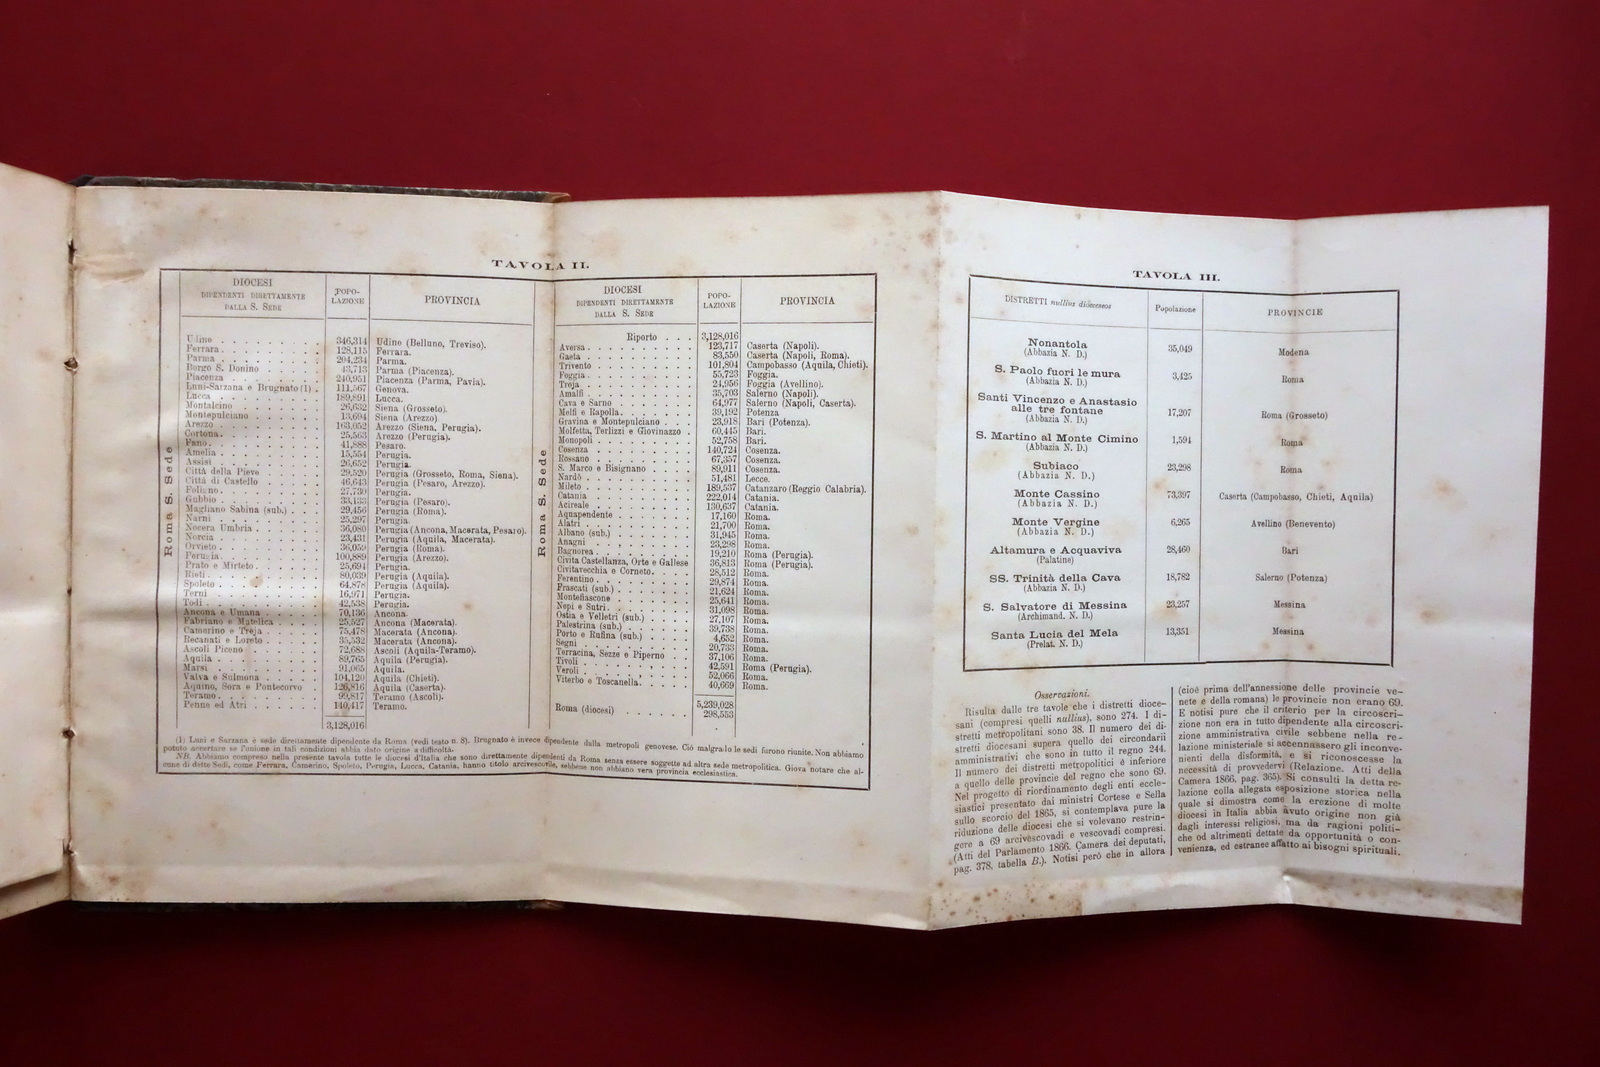 TAVOLA II.
DIOCESI
DIPENDENTI DIRETTAMENTE
DALLA S. SEDE
POPO-
LAZIONE
PROVINCIA
Roma S. Sede
Udine 346,314 Udine (Belluno, Treviso).
Ferrara 128,115 Ferrara.
Parma 204,234 Parma.
Borgo S. Donino 43,713 Parma (Piacenza).
Piacenza 240,951 Piacenza (Parma, Pavia).
Luni-Sarzana e Brugnato (1) 111,567 Genova.
Lucca 189,891 Lucca.
Montalcino 26,632 Siena (Grosseto).
Montepulciano 13,694 Siena (Arezzo)
Arezzo 163,052 Arezzo (Siena, Perugia).
Cortona 25,563 Arezzo (Perugia).
Fano 41,888 Pesaro.
Amelia 15,554 Perugia.
Assisi 26,652 Perugia.
Città della Pieve 29,520 Perugia (Grosseto, Roma, Siena).
Città di Castello 46,643 Perugia (Pesaro, Arezzo).
Foligno 27,730 Perugia.
Gubbio 33,133 Perugia (Pesaro).
Magliano Sabina (sub.) 29,456 Perugia (Roma).
Narni 25,297 Perugia.
Nocera Umbria 36,080 Perugia (Ancona, Macerata, Pesaro).
Norcia 23,431 Perugia (Aquila, Macerata).
Orvieto 36,059 Perugia (Roma).
Perugia 100,889 Perugia (Arezzo).
Prato e Mirteto 25,694 Perugia.
Rieti 80,039 Perugia (Aquila).
Spoleto 64,878 Perugia (Aquila).
Terni 16,971 Perugia.
Todi 42,538 Perugia.
Ancona e Umana 70,136 Ancona.
Fabriano e Matelica 25,527 Ancona (Macerata).
Camerino e Treja 75,478 Macerata (Ancona).
Recanati e Loreto 35,532 Macerata (Ancona).
Ascoli Piceno 72,688 Ascoli (Aquila-Teramo).
Aquila 89,765 Aquila (Perugia).
Marsi 91,065 Aquila.
Valva e Sulmona 104,120 Aquila (Chieti).
Aquino, Sora e Pontecorvo 126,816 Aquila (Caserta).
Teramo 99,817 Teramo (Ascoli).
Penne ed Atri 140,417 Teramo.
3,128,016
DIOCESI
DIPENDENTI DIRETTAMENTE
DALLA S. SEDE
POPO-
LAZIONE
PROVINCIA
Roma S. Sede
Riporto 3,128,016
Aversa 123,717 Caserta (Napoli).
Gaeta 83,550 Caserta (Napoli, Roma).
Trivento 101,804 Campobasso (Aquila, Chieti).
Foggia 55,723 Foggia.
Troja 24,956 Foggia (Avellino).
Amalfi 35,703 Salerno (Napoli).
Cava e Sarno 64,977 Salerno (Napoli, Caserta).
Melfi e Rapolla 39,192 Potenza
Gravina e Montepulciano 23,918 Bari (Potenza).
Molfetta, Terlizzi e Giovinazzo 60,445 Bari.
Monopoli 52,758 Bari.
Cosenza 140,724 Cosenza.
Rossano 67,357 Cosenza.
S. Marco e Bisignano 89,911 Cosenza.
Nardò 51,481 Lecce.
Mileto 189,537 Catanzaro (Reggio Calabria).
Catania 222,014 Catania.
Acireale 130,637 Catania.
Aquapendente 17,160 Roma.
Alatri 21,700 Roma.
Albano (sub.) 31,945 Roma.
Anagni 23,298 Roma.
Bagnorea 19,210 Roma (Perugia).
Civita Castellanza, Orte e Gallese 36,813 Roma (Perugia).
Civitavecchia e Corneto 28,512 Roma.
Ferentino 29,874 Roma.
Frascati (sub.) 21,624 Roma.
Montefiascone 25,641 Roma.
Nepi e Sutri 31,098 Roma.
Ostia e Velletri (sub.) 27,107 Roma.
Palestrina (sub.) 39,738 Roma.
Porto e Rufina (sub.) 4,652 Roma.
Segni 20,733 Roma.
Terracina, Sezze e Piperno 37,106 Roma.
Tivoli 42,591 Roma (Perugia).
Veroli 52,066 Roma.
Viterbo e Toscanella 40,669 Roma.
5,239,028
Roma (diocesi) 298,553
(1) Luni e Sarzana è sede direttamente dipendente da Roma (vedi testo n. 8). Brugnato è invece dipendente dalla metropoli genovese. Ciò malgrado le sedi furono riunite. Non abbiamo
potuto accertare se l'unione in tali condizioni abbia dato origine a difficoltà.
NB. Abbiamo compreso nella presente tavola tutte le diocesi d'Italia che sono direttamente dipendenti da Roma senza essere soggette ad altra sede metropolitica. Giova notare che al-
cune di dette Sedi, come Ferrara, Camerino, Spoleto, Perugia, Lucca, Catania, hanno titolo arcivescovile, sebbene non abbiano vera provincia ecclesiastica.
TAVOLA III.
DISTRETTI nullius diœceseos
Popolazione
PROVINCIE
Nonantola
(Abbazia N. D.) 35,049 Modena
S. Paolo fuori le mura
(Abbazia N. D.) 3,425 Roma
Santi Vincenzo e Anastasio
alle tre fontane
(Abbazia N. D.) 17,207 Roma (Grosseto)
S. Martino al Monte Cimino
(Abbazia N. D.) 1,594 Roma
Subiaco
(Abbazia N. D.) 23,298 Roma
Monte Cassino
(Abbazia N. D.) 73,397 Caserta (Campobasso, Chieti, Aquila)
Monte Vergine
(Abbazia N. D.) 6,265 Avellino (Benevento)
Altamura e Acquaviva
(Palatine) 28,460 Bari
SS. Trinità della Cava
(Abbazia N. D.) 18,782 Salerno (Potenza)
S. Salvatore di Messina
(Archimand. N. D.) 23,257 Messina
Santa Lucia del Mela
(Prelat. N. D.) 13,351 Messina
Osservazioni.
Risulta dalle tre tavole che i distretti dioce-
sani (compresi quelli nullius), sono 274. I di-
stretti metropolitani sono 38. Il numero dei di-
stretti diocesani supera quello dei circondarii
amministrativi che sono in tutto il regno 244.
Il numero dei distretti metropolitici è inferiore
a quello delle provincie del regno che sono 69.
Nel progetto di riordinamento degli enti eccle-
siastici presentato dai ministri Cortese e Sella
sullo scorcio del 1865, si contemplava pure la
riduzione delle diocesi che si volevano restrin-
gere a 69 arcivescovadi e vescovadi compresi.
(Atti del Parlamento 1866. Camera dei deputati,
pag. 378, tabella B.). Notisi però che in allora
(cioè prima dell'annessione delle provincie ve-
nete e della romana) le provincie non erano 69.
E notisi pure che il criterio per la circoscri-
zione non era in tutto dipendente alla circoscri-
zione amministrativa civile sebbene nella re-
lazione ministeriale si accennassero gli inconve-
nienti della disformità, e si riconoscesse la
necessità di provvedervi (Relazione. Atti della
Camera 1866, pag. 365). Si consulti la detta re-
lazione colla allegata esposizione storica nella
quale si dimostra come la erezione di molte
diocesi in Italia abbia avuto origine non già
dagli interessi religiosi, ma da ragioni politi-
che od altrimenti dettate da opportunità o con-
venienza, ed estranee affatto ai bisogni spirituali.